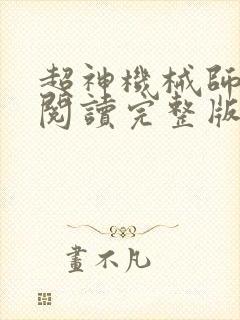 超神機械師
閱讀完整版
畫不凡